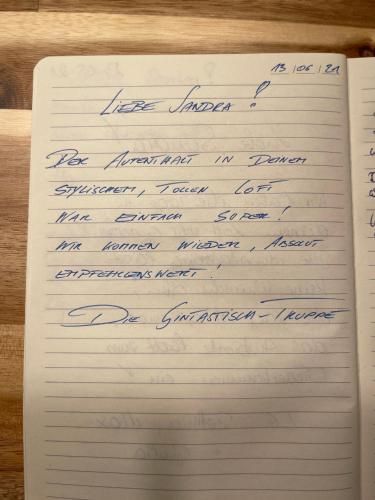 13/06/21
LIEBE SANDRA!
DER AUTENTHALT IN DEINEM
STYLISCHEM, TOLLEN LOFT
WAR EINFACH SUPER!
WIR KOMMEN WIEDER, ABSOLUT
EMPFEHLENSWERT!
DIE GINTASTISCH-TRUPPE